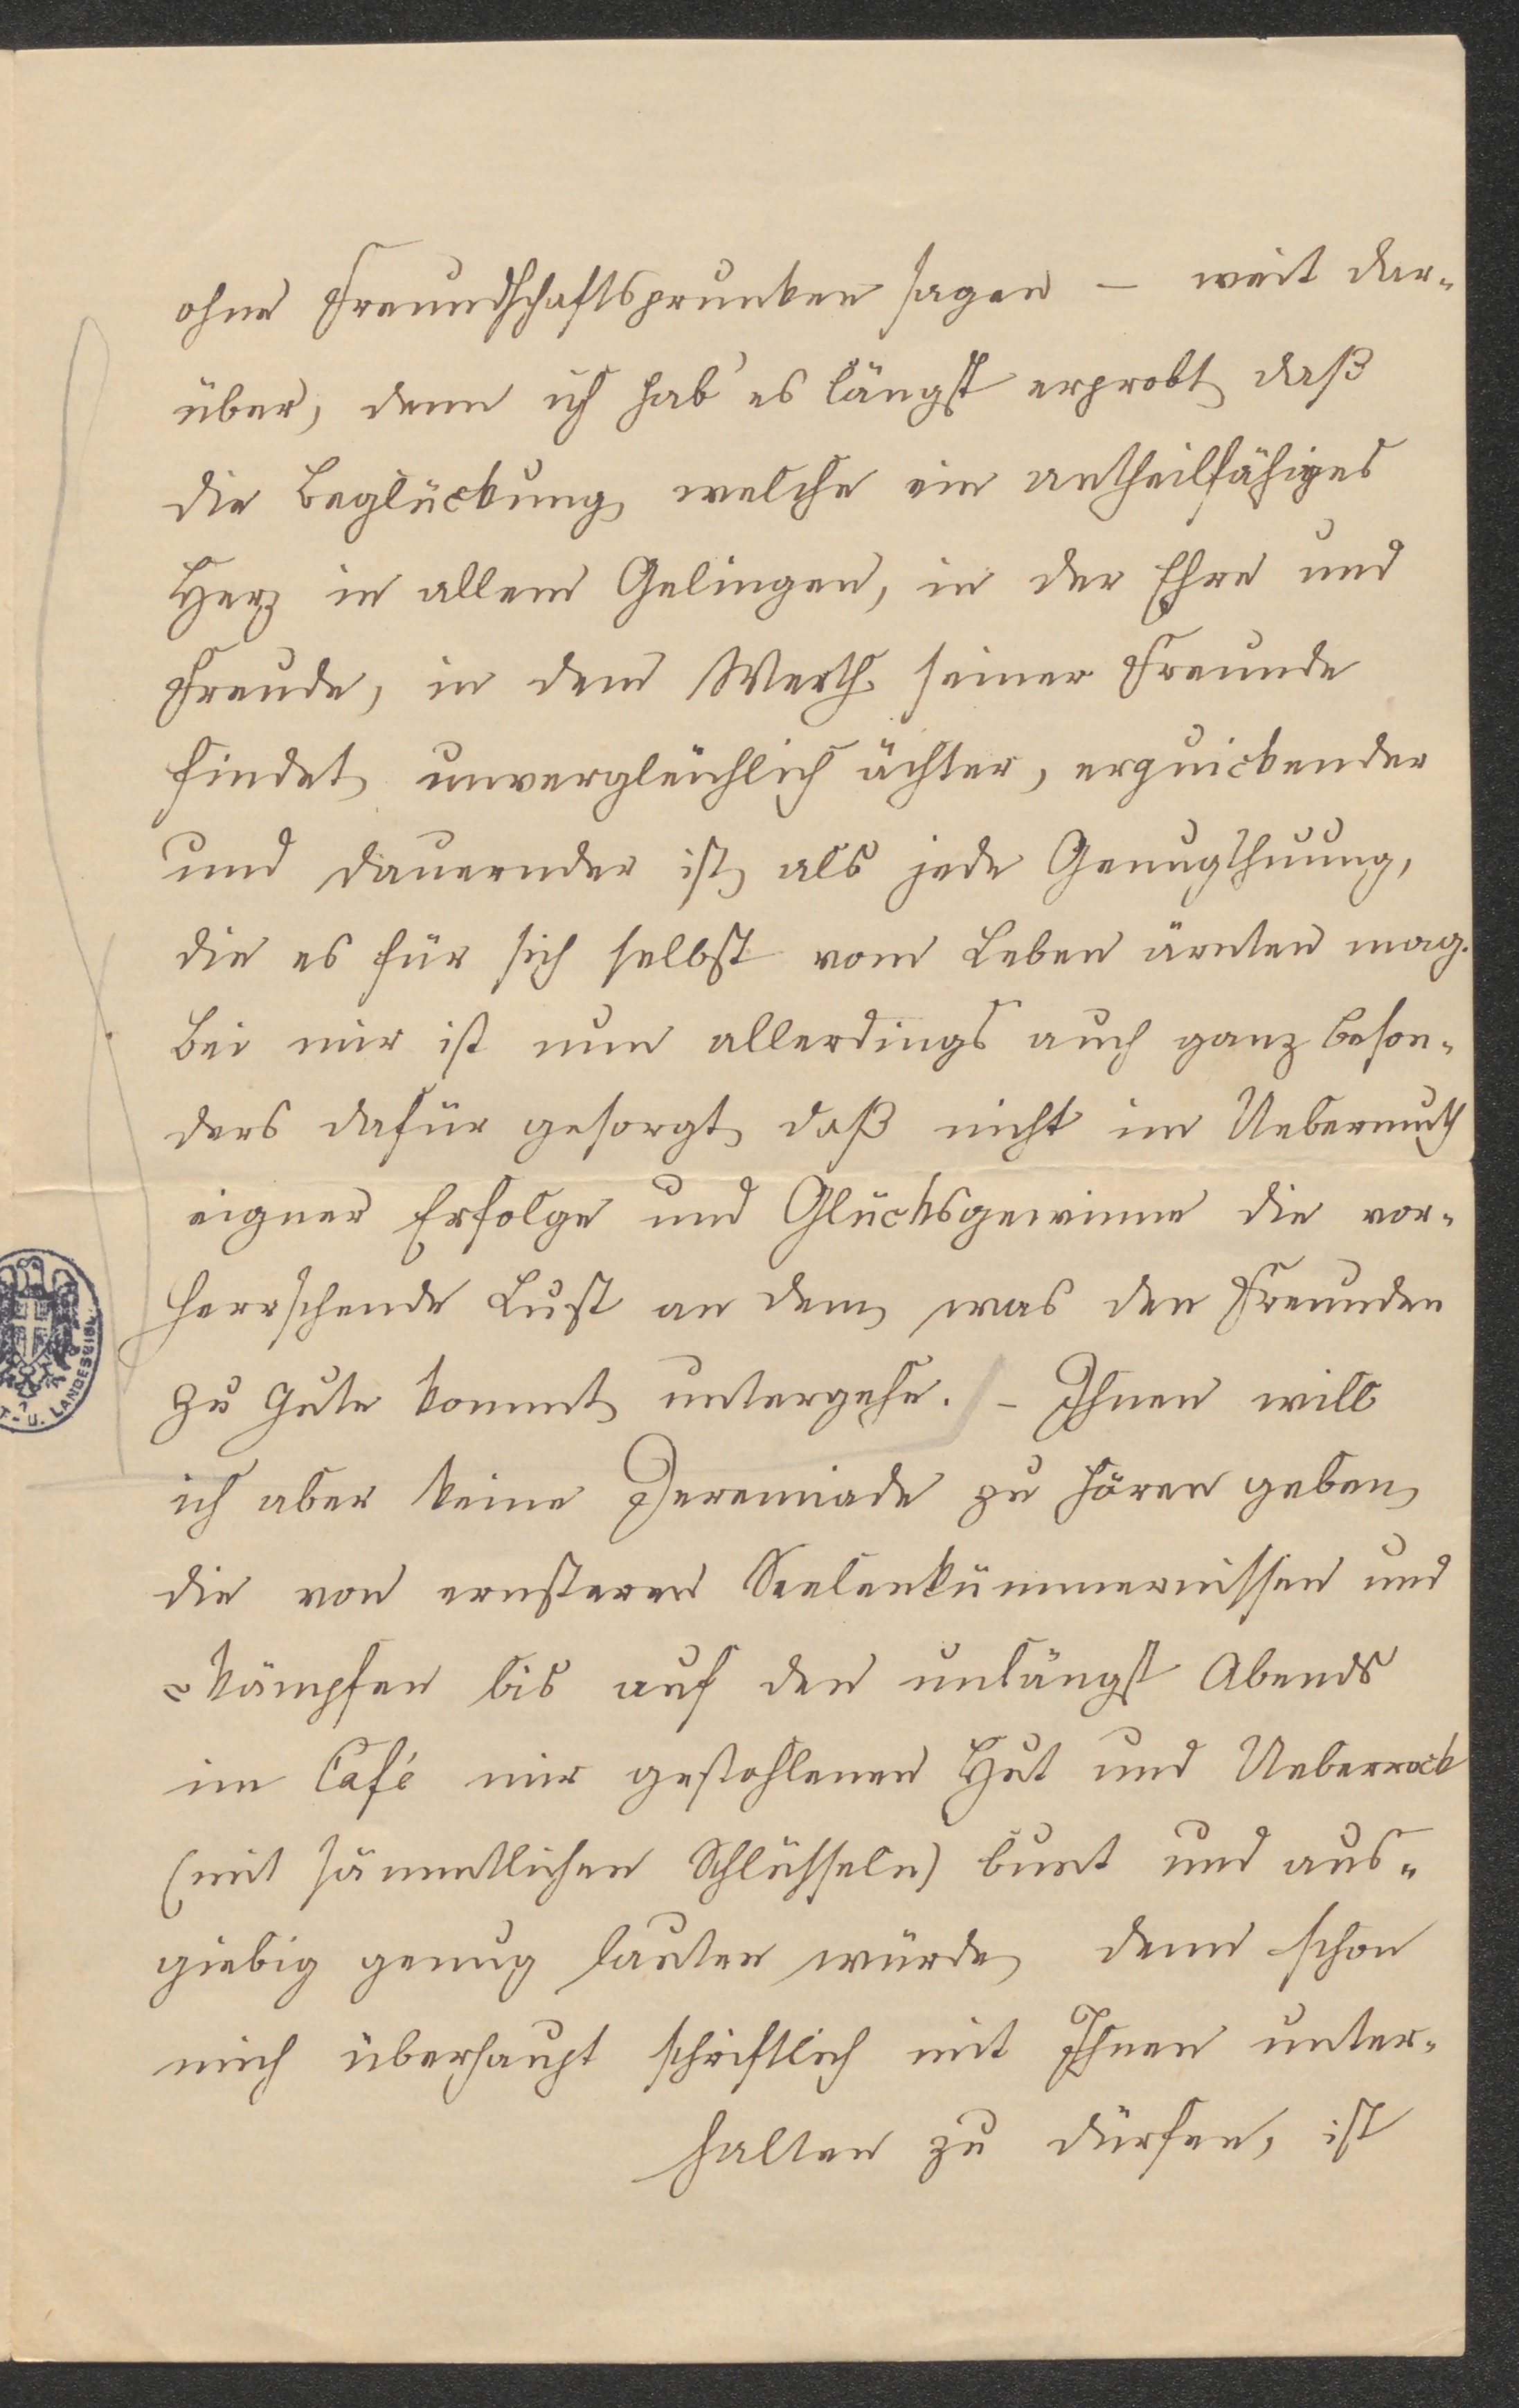 ohne Freundschaftsprunken sagen – weit dar-
über, denn ich hab' es längst erprobt, daß
die Beglückung, welche ein antheilfähiges
Herz in allem Gelingen, in der Ehre und
Freude, in dem Werth seiner Freunde
findet, unvergleichlich ächter, erquickender
und dauernder ist, als jede Genugthuung,
die es für sich selbst vom Leben ärnten mag.
Bei mir ist nun allerdings auch ganz beson-
ders dafür gesorgt, daß nicht im Uebermuth
eigner Erfolge und Glücksgewinne die vor-
herrschende Lust an dem, was den Freunden
zu Gute kommt, untergehe. – Ihnen will
ich aber keine Jeremiade zu hören geben,
die von ernsteren Seelenkümmernissen und
-kämpfen bis auf den unlängst Abends
im Café mir gestohlenen Hut und Ueberrock
(mit sämmtlichen Schlüsseln) bunt und aus-
giebig genug lauten würde, denn schon
mich überhaupt schriftlich mit Ihnen unter-
halten zu dürfen, ist
T- U. LANDESBIBL.